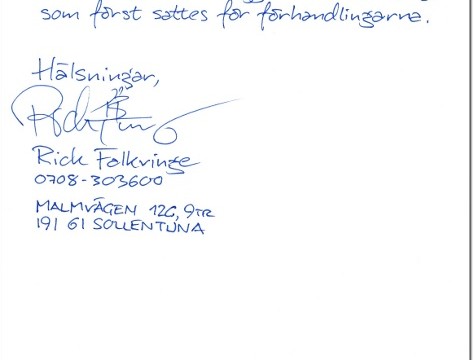 som först sattes för förhandlingarna.
Hälsningar,
Rick Falkvinge
0708-303600
MALMVÄGEN 12C, 9TR
191 61 SOLLENTUNA